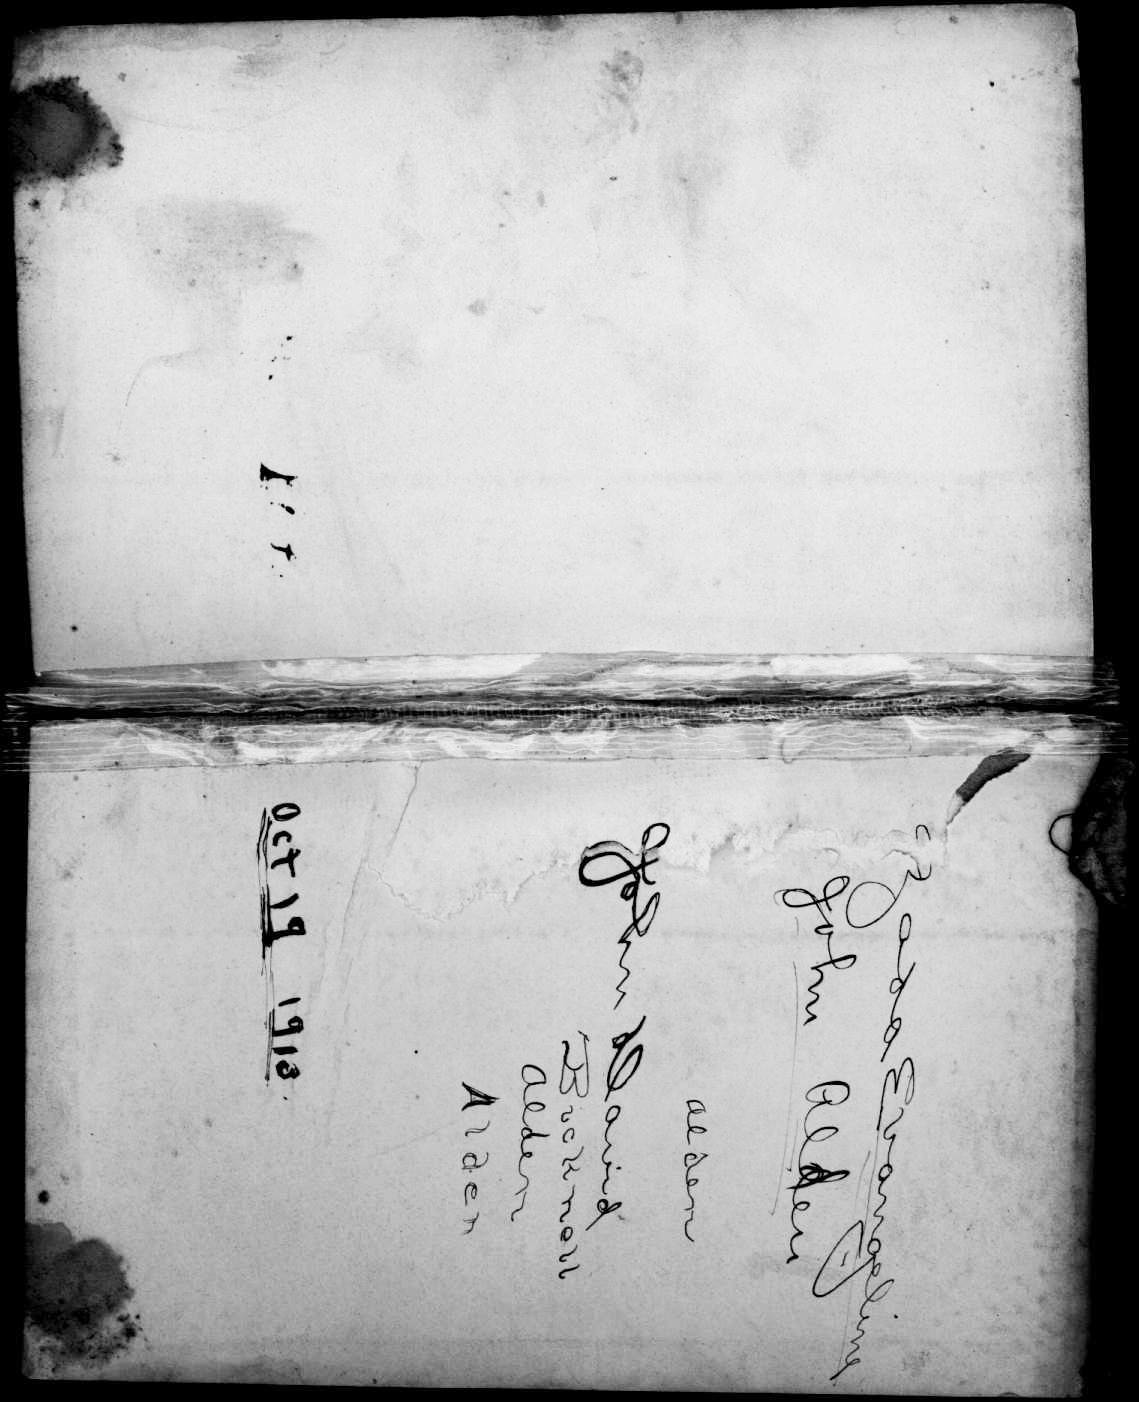 Zada Evangeline
John Alden
alden
John David
Bicknell
alden
Alden
Oct 19 1913